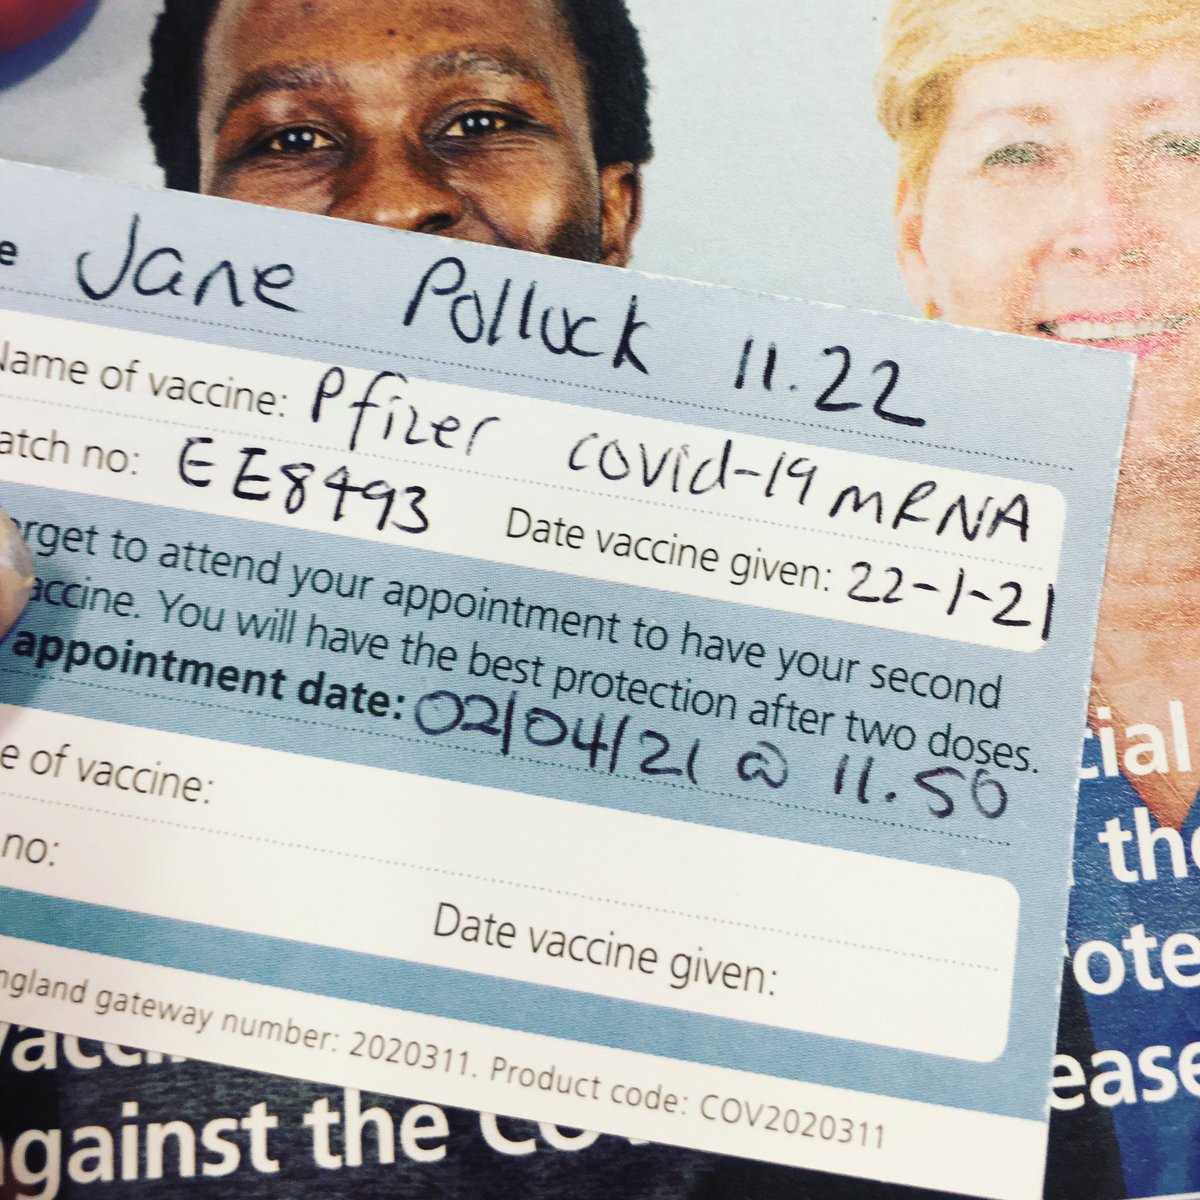 e Jane Polluck 11.22
Name of vaccine: Pfizer covid-19 mRNA
atch no: EE8493 Date vaccine given: 22-1-21
rget to attend your appointment to have your second
accine. You will have the best protection after two doses.
appointment date: 02/04/21 @ 11.50
e of vaccine:
no:
Date vaccine given:
ngland gateway number: 2020311. Product code: COV2020311
cial
the
rote
ease
vacci
against the Co